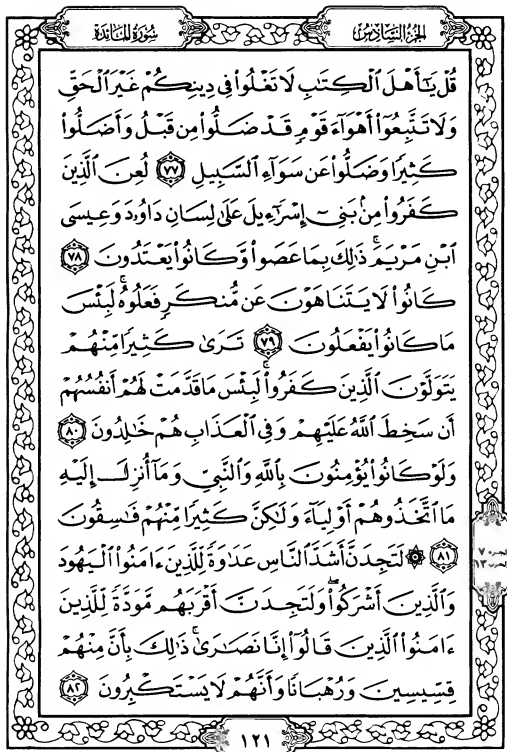 سُورَةُ المَائدة
الجزءُ السَّادِسُ
قُلْ يَٰٓأَهْلَ ٱلْكِتَٰبِ لَا تَغْلُوا۟ فِى دِينِكُمْ غَيْرَ ٱلْحَقِّ
وَلَا تَتَّبِعُوٓا۟ أَهْوَآءَ قَوْمٍ قَدْ ضَلُّوا۟ مِن قَبْلُ وَأَضَلُّوا۟
كَثِيرًا وَضَلُّوا۟ عَن سَوَآءِ ٱلسَّبِيلِ ٧٧ لُعِنَ ٱلَّذِينَ
كَفَرُوا۟ مِنۢ بَنِىٓ إِسْرَٰٓءِيلَ عَلَىٰ لِسَانِ دَاوُۥدَ وَعِيسَى
ٱبْنِ مَرْيَمَ ۚ ذَٰلِكَ بِمَا عَصَوا۟ وَّكَانُوا۟ يَعْتَدُونَ ٧٨
كَانُوا۟ لَا يَتَنَاهَوْنَ عَن مُّنكَرٍ فَعَلُوهُ ۚ لَبِئْسَ
مَا كَانُوا۟ يَفْعَلُونَ ٧٩ تَرَىٰ كَثِيرًا مِّنْهُمْ
يَتَوَلَّوْنَ ٱلَّذِينَ كَفَرُوا۟ ۚ لَبِئْسَ مَا قَدَّمَتْ لَهُمْ أَنفُسُهُمْ
أَن سَخِطَ ٱللَّهُ عَلَيْهِمْ وَفِى ٱلْعَذَابِ هُمْ خَٰلِدُونَ ٨٠
وَلَوْ كَانُوا۟ يُؤْمِنُونَ بِٱللَّهِ وَٱلنَّبِىِّ وَمَآ أُنزِلَ إِلَيْهِ
مَا ٱتَّخَذُوهُمْ أَوْلِيَآءَ وَلَٰكِنَّ كَثِيرًا مِّنْهُمْ فَٰسِقُونَ
٨١ ۞ لَتَجِدَنَّ أَشَدَّ ٱلنَّاسِ عَدَٰوَةً لِّلَّذِينَ ءَامَنُوا۟ ٱلْيَهُودَ
وَٱلَّذِينَ أَشْرَكُوا۟ ۖ وَلَتَجِدَنَّ أَقْرَبَهُم مَّوَدَّةً لِّلَّذِينَ
ءَامَنُوا۟ ٱلَّذِينَ قَالُوٓا۟ إِنَّا نَصَٰرَىٰ ۚ ذَٰلِكَ بِأَنَّ مِنْهُمْ
قِسِّيسِينَ وَرُهْبَانًا وَأَنَّهُمْ لَا يَسْتَكْبِرُونَ ٨٢
٧
١٣
١٢١